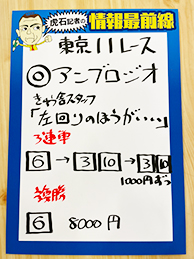 虎石記者の
情報最前線
東京11レース
◎アンブロジオ
きゅう舎スタッフ
「左回りのほうがいい」
3連単
6→3 10→3 10
1000円ずつ
複勝
6 8000円